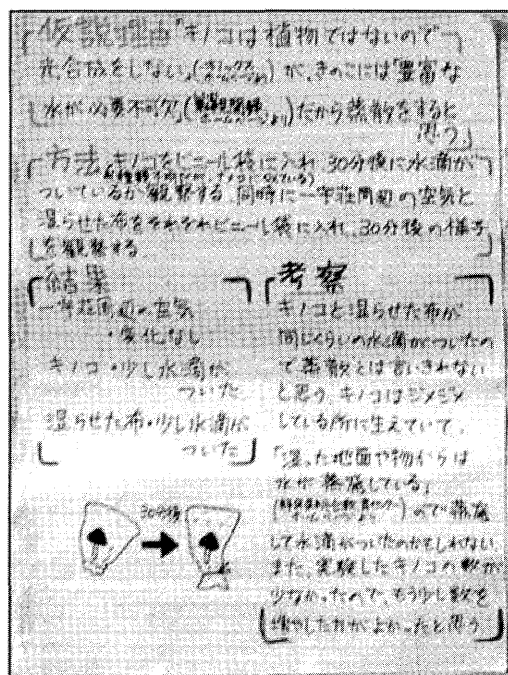 仮説理由「キノコは植物ではないので
光合成をしない」が、きのこには「豊富な
水が必要不可欠」だから蒸散をすると
思う
方法 キノコをビニール袋に入れ、30分後に水滴が
ついているか観察する。同時に一宇荘周辺の空気と
湿らせた布をそれぞれビニール袋に入れ、30分後の様子
を観察する。
結果
一宇荘周辺の空気
・変化なし
キノコ・少し水滴が
ついた
湿らせた布・少し水滴が
ついた
30分後
考察
キノコと湿らせた布が
同じくらいの水滴がついたの
で蒸散とは言いきれない
と思う。キノコはジメジメ
している所に生えていて、
「湿った地面や物からは
水が蒸発している」
ので蒸発
して水滴がついたのかもしれない
また、実験したキノコの数が
少なかったので、もう少し数を
増やした方がよかったと思う